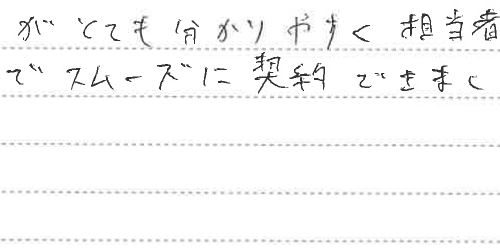 がとても分かりやすく担当者
でスムーズに契約できまし